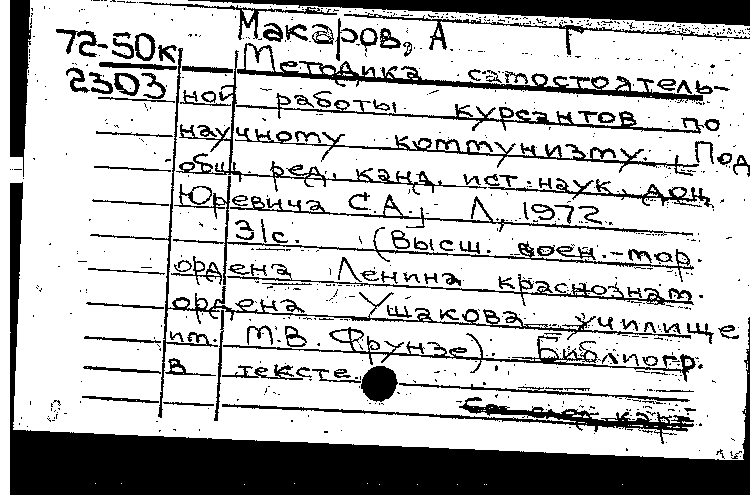 Макаров, А Г
72-50к
2303
Методика самостоятель-
ной работы курсантов по
научному коммунизму. [Под
общ. ред. канд. ист. наук, доц.
Юревича С.А.] Л, 1972.
31с. (Высш. воен.-мор.
ордена Ленина краснознам.
ордена Ушакова училище
им. М.В. Фрунзе). Библиогр.
в тексте